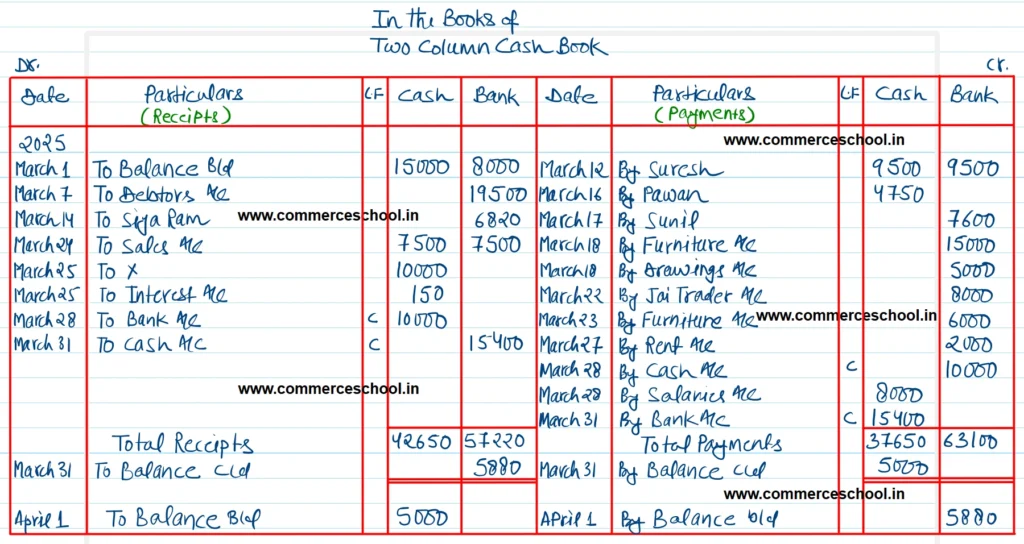 In the Books of
Two Column Cash Book
Dr. Cr.
Date Particulars LF Cash Bank Date Particulars LF Cash Bank
(Receipts) (Payments)
2025 www.commerceschool.in
March 1 To Balance B/d 15000 8000 March 12 By Suresh 9500 9500
March 7 To Debtors A/c 19500 March 16 By Pawan 4750
March 14 To Siya Ram www.commerceschool.in 6820 March 17 By Sunil 7600
March 24 To Sales A/c 7500 7500 March 18 By Furniture A/c 15000
March 25 To X 10000 March 18 By Drawings A/c 5000
March 25 To Interest A/c 150 March 22 By Jai Trader A/c 8000
March 28 To Bank A/c C 10000 March 23 By Furniture A/c www.commerceschool.in 6000
March 31 To Cash A/c C 15400 March 27 By Rent A/c 2000
March 28 By Cash A/c C 10000
www.commerceschool.in March 28 By Salaries A/c 8000
March 31 By Bank A/c C 15400
Total Receipts 42650 57220 Total Payments 37650 63100
March 31 To Balance c/d 5880 March 31 By Balance c/d 5000
www.commerceschool.in
April 1 To Balance B/d 5000 April 1 By Balance b/d 5880